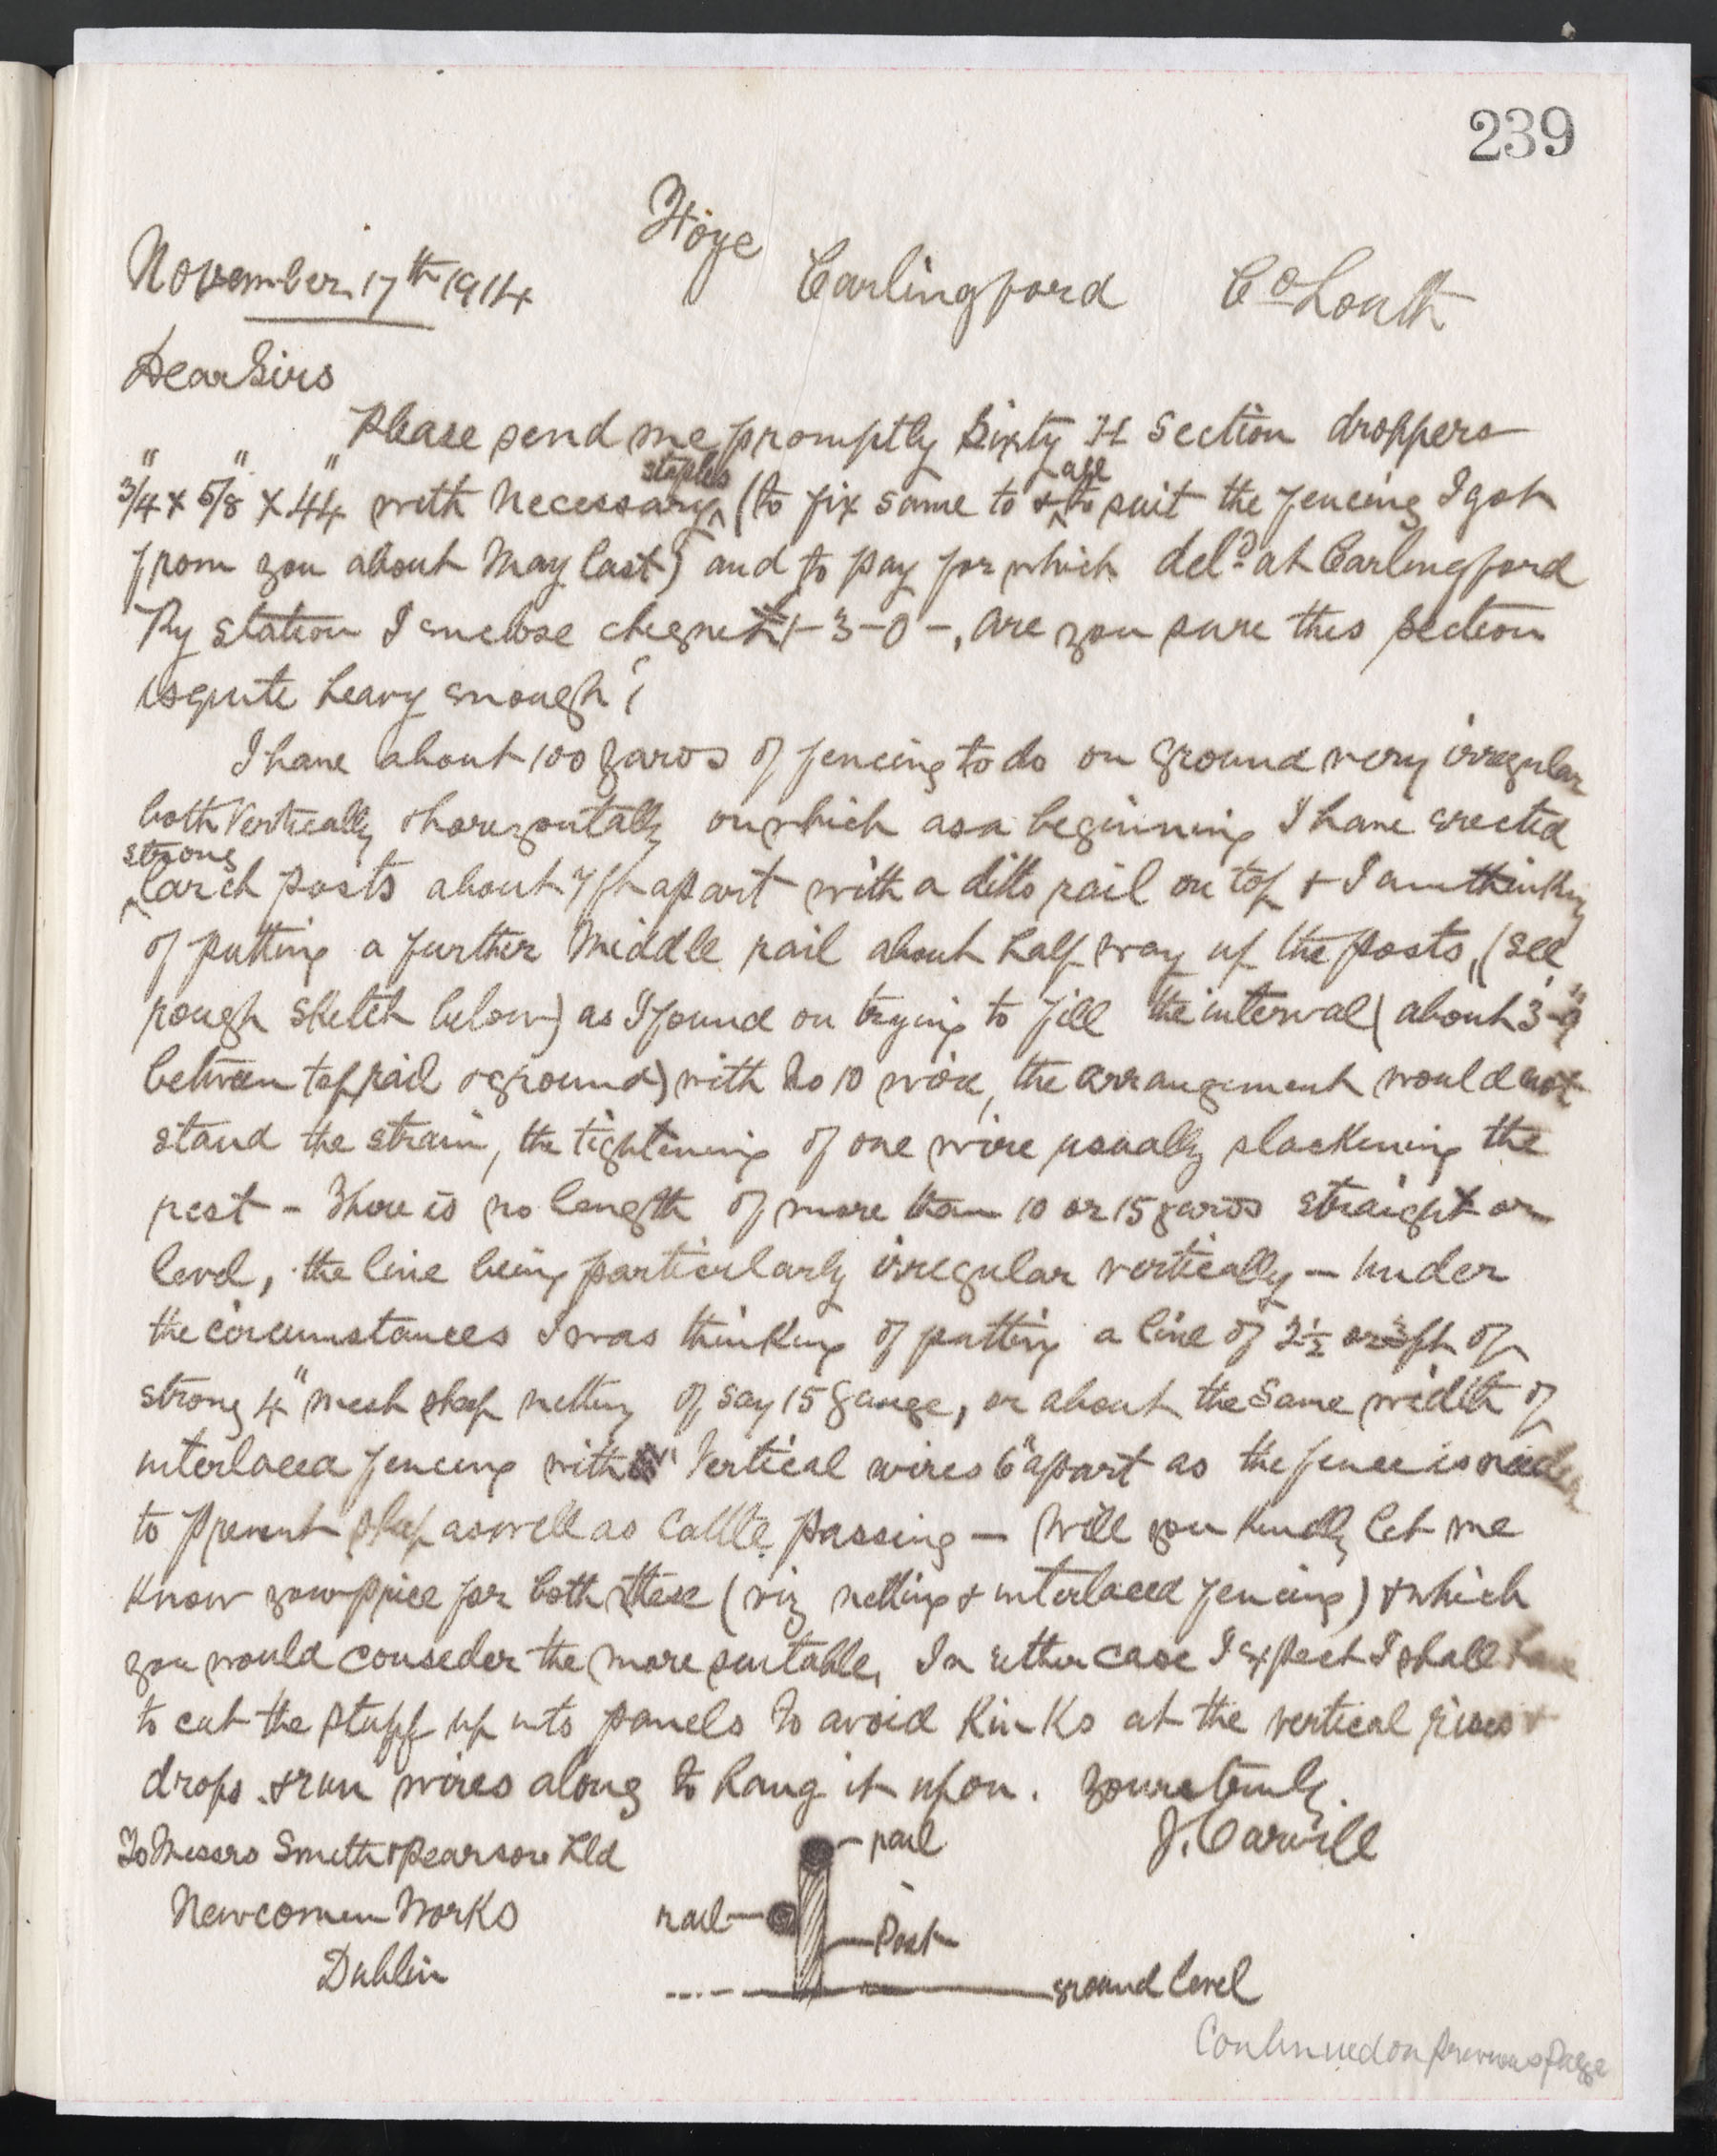 239
November 17th 1914
Carlingford Co Louth
Dear Sirs
Please send me promptly Sixty H Section droppers
3/4" x 5/8" x 44" with necessary staples (to fix same to & all to suit the fencing I got
from you about May last) and to pay for which deld at Carlingford
Ry station I enclose cheque £1-3-0-, are you sure this section
is quite heavy enough?
I have about 100 yards of fencing to do on ground very irregular
both vertically & horizontally on which as a beginning I have erected
strong larch posts about 7 ft apart with a ditto rail on top & I am thinking
of putting a further middle rail about half way up the posts, (see
rough sketch below) as I found on trying to fill the interval (about 3'-9"
between top rail & ground) with No 10 wire, the arrangement would not
stand the strain, the tightening of one wire usually slackening the
rest - There is no length of more than 10 or 15 yards straight or
level, the line being particularly irregular vertically - Under
the circumstances I was thinking of putting a line of 2½ or 3 ft of
strong 4" mesh sheep netting of say 15 gauge, or about the same width of
interlaced fencing with vertical wires 6" apart as the fence is needed
to prevent sheep as well as cattle passing - Will you kindly let me
know your price for both these (viz netting & interlaced fencing) & which
you would consider the more suitable, In either case I expect I shall have
to cut the stuff up into panels to avoid kinks at the vertical rises &
drops & run wires along to hang it upon. Yours truly
J. Carvill
To Messrs Smith & Pearson Ltd
Newcomen Works
Dublin
rail
rail
Post
ground level
Continued on previous page